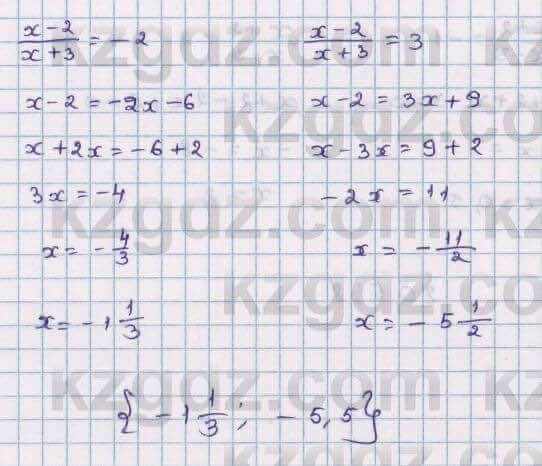 (x-2)/(x+3) = -2
x-2 = -2x-6
x+2x = -6+2
3x = -4
x = -4/3
x = -1 1/3
(x-2)/(x+3) = 3
x-2 = 3x+9
x-3x = 9+2
-2x = 11
x = -11/2
x = -5 1/2
{-1 1/3; -5,5}
kzgdz.com
kzgdz.com
kzgdz.com
kzgdz.com
kzgdz.com
kzgdz.com